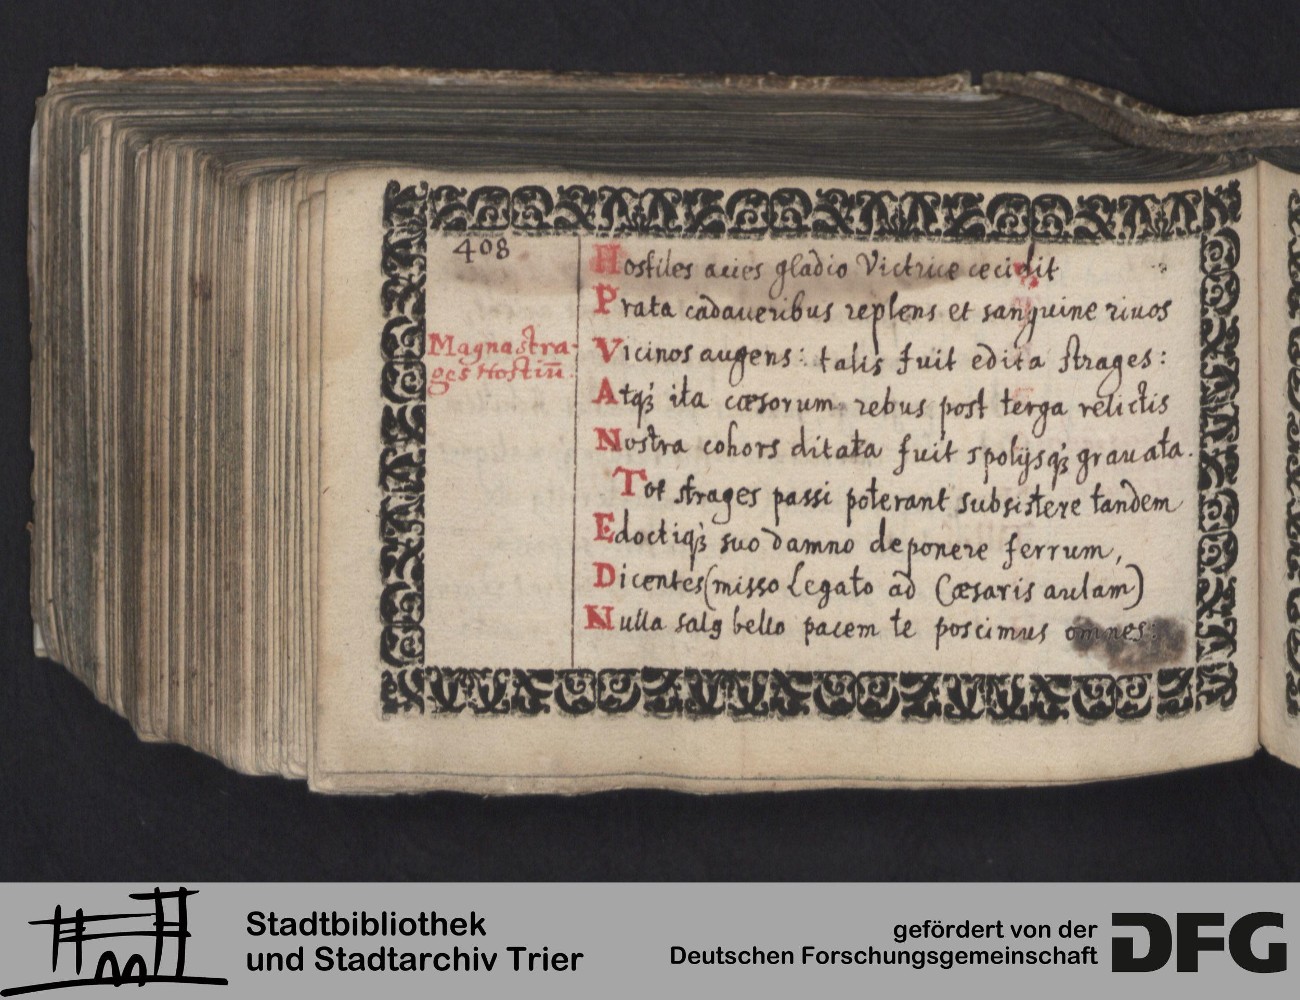 408
Hostiles acies gladio Victrice cecidit
Prata cadaueribus replens et sanguine riuos
Magna stra-
ges Hostiū.
Vicinos augens: talis fuit edita strages:
Atqȝ ita cæsorum rebus post terga relictis
Nostra cohors ditata fuit spolijsqȝ grauata.
Tot strages passi poterant subsistere tandem
Edoctiqȝ suo damno deponere ferrum,
Dicentes (misso Legato ad Cæsaris aulam)
Nulla salꝯ bello pacem te poscimus omnes:
Stadtbibliothek
und Stadtarchiv Trier
gefördert von der
Deutschen Forschungsgemeinschaft
DFG